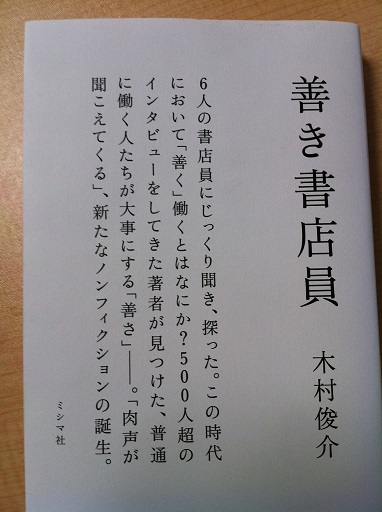 善き書店員
木村俊介
6人の書店員にじっくり聞き、探った。この時代
において「善く」働くとはなにか?500人超の
インタビューをしてきた著者が見つけた、普通
に働く人たちが大事にする「善さ」――。「肉声が
聞こえてくる」、新たなノンフィクションの誕生。
ミシマ社